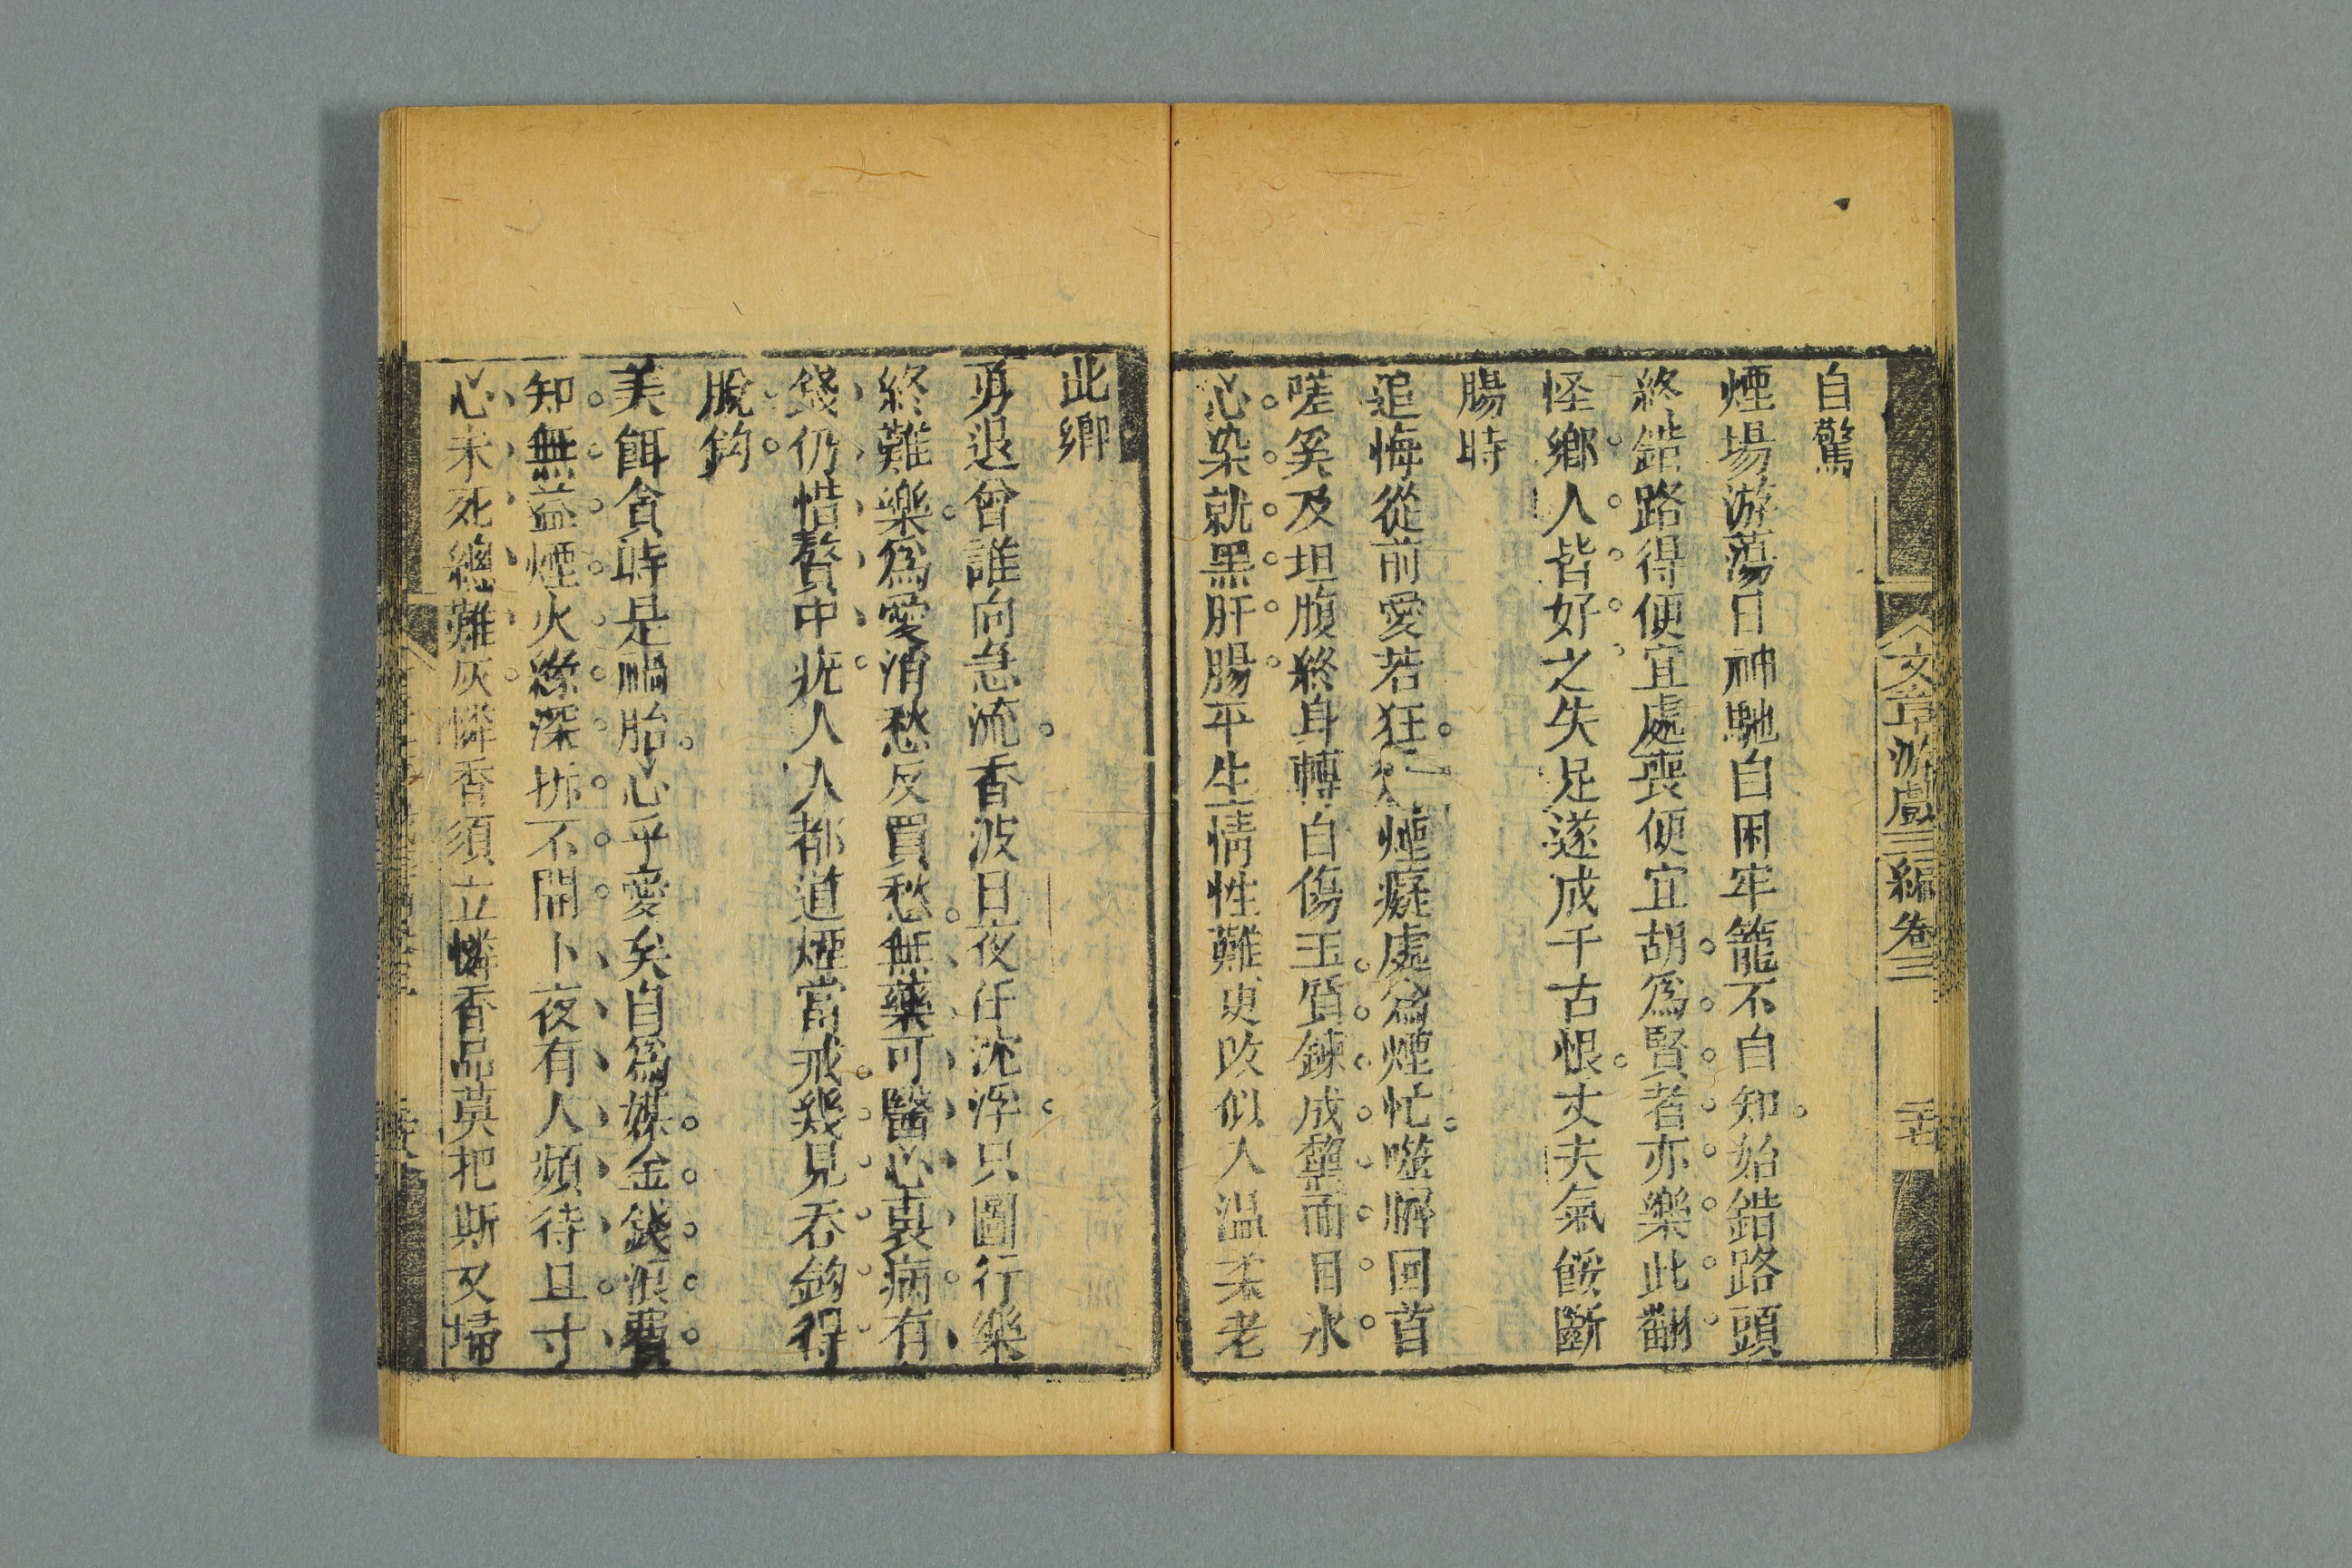 文章游戲三編卷三
二十七
自驚
煙場游蕩日神馳自困牢籠不自知始錯路頭
終錯路得便宜處喪便宜胡爲賢者亦樂此翻
怪鄉人皆好之失足遂成千古恨丈夫氣餒斷
腸時
追悔從前愛若狂煙癡處爲煙忙噬臍回首
嗟奚及坦腹終身轉自傷玉質鍊成黧面目氷
心染就黑肝腸平生情性難更改似入温柔老
此鄉
勇退曾誰向急流香波日夜任沈浮只圖行樂
終難樂爲愛消愁反買愁無藥可醫心裏病有
錢仍惜贅中疣人人都道煙當戒幾見吞鉤得
脫鉤
美餌貪時是禍胎心乎愛矣自爲媒金錢浪費
知無益煙火緣深拆不開卜夜有人頻待旦寸
心未死總難灰憐香須立憐香品莫把斯文掃